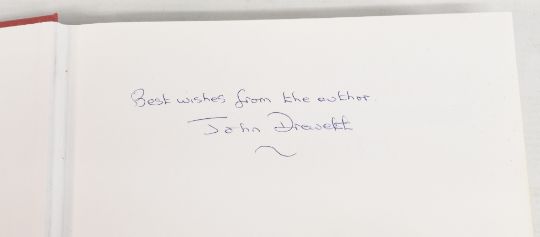 Best wishes from the author
John Drewett